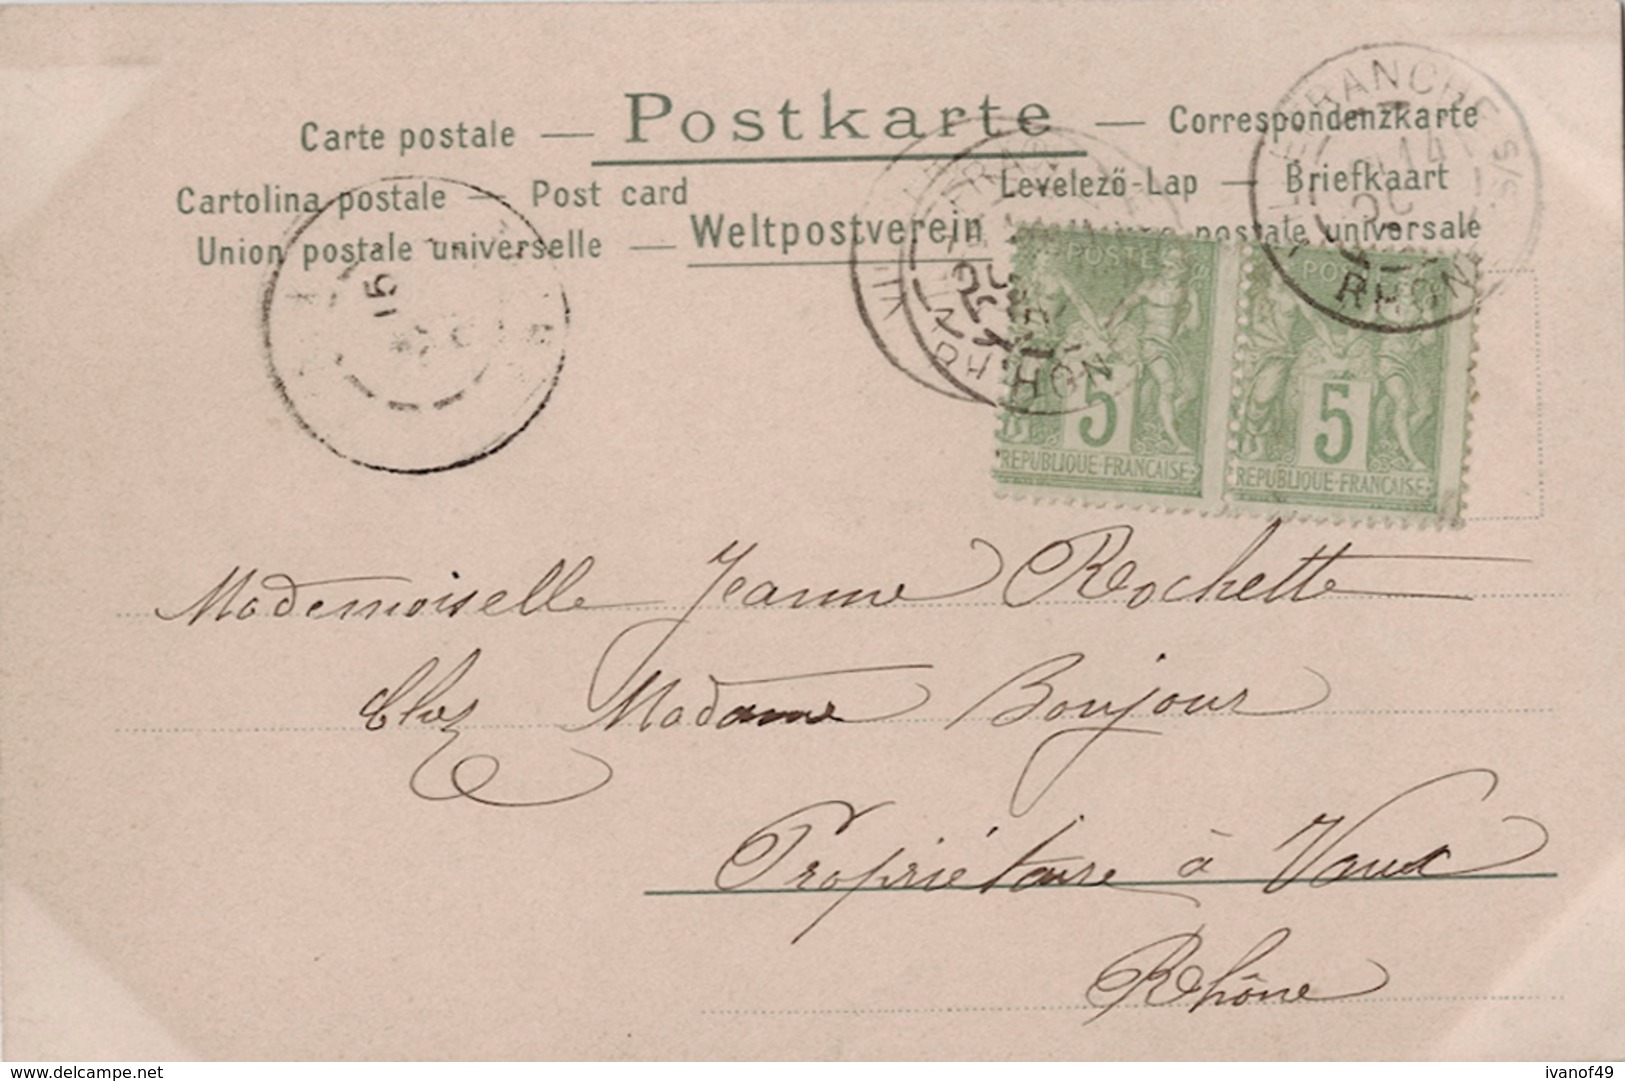 Carte postale — Postkarte — Correspondenzkarte
Cartolina postale — Post card
Levelező-Lap — Briefkaart
Union postale universelle — Weltpostverein
postale universale
VILLEFRANCHE S/S
14
OC
RHONE
15
RHONE
POSTES
5
REPUBLIQUE-FRANCAISE
5
REPUBLIQUE-FRANCAISE
Mademoiselle Jeanne Rochette
Chez Madame Bonjour
Propriétaire à Vaux
Rhône
https://www.delcampe.net
ivanof49